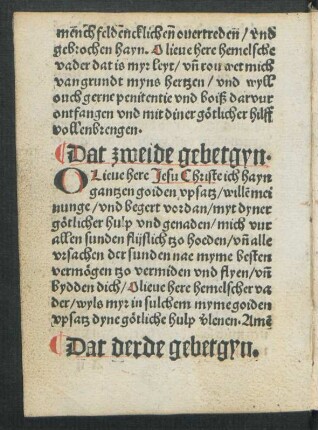 mēnch feldencklichen̄ ouertreden̄ / vnd
gebrochen hayn. O lieue here hemelsche
vader dat is myr leyt / vn̄ rouwet mich
van grundt myns hertzen / vnd wyll
ouch gerne penitentie vnd boiß daruur
ontfangen vnd mit diner götlicher hilff
vollenbrengen.
Dat zweide gebetgyn.
O Lieue here Jesu Christe ich hayn
gantzen goiden vpsatz / wille mei
nunge / vnd begert vortdan / myt dyner
götlicher hulp vnd genaden / mich vur
allen sunden flijslich tzo hoeden / vn̄ alle
vrsachen der sunden nae myme besten
vermögen tzo vermiden vnd flyen / vn̄
bydden dich / O lieue here hemelscher va
der / wyls myr in sulchem myme goiden
vpsatz dyne götliche hulp v̄lenen. Amē
Dat derde gebetgyn.